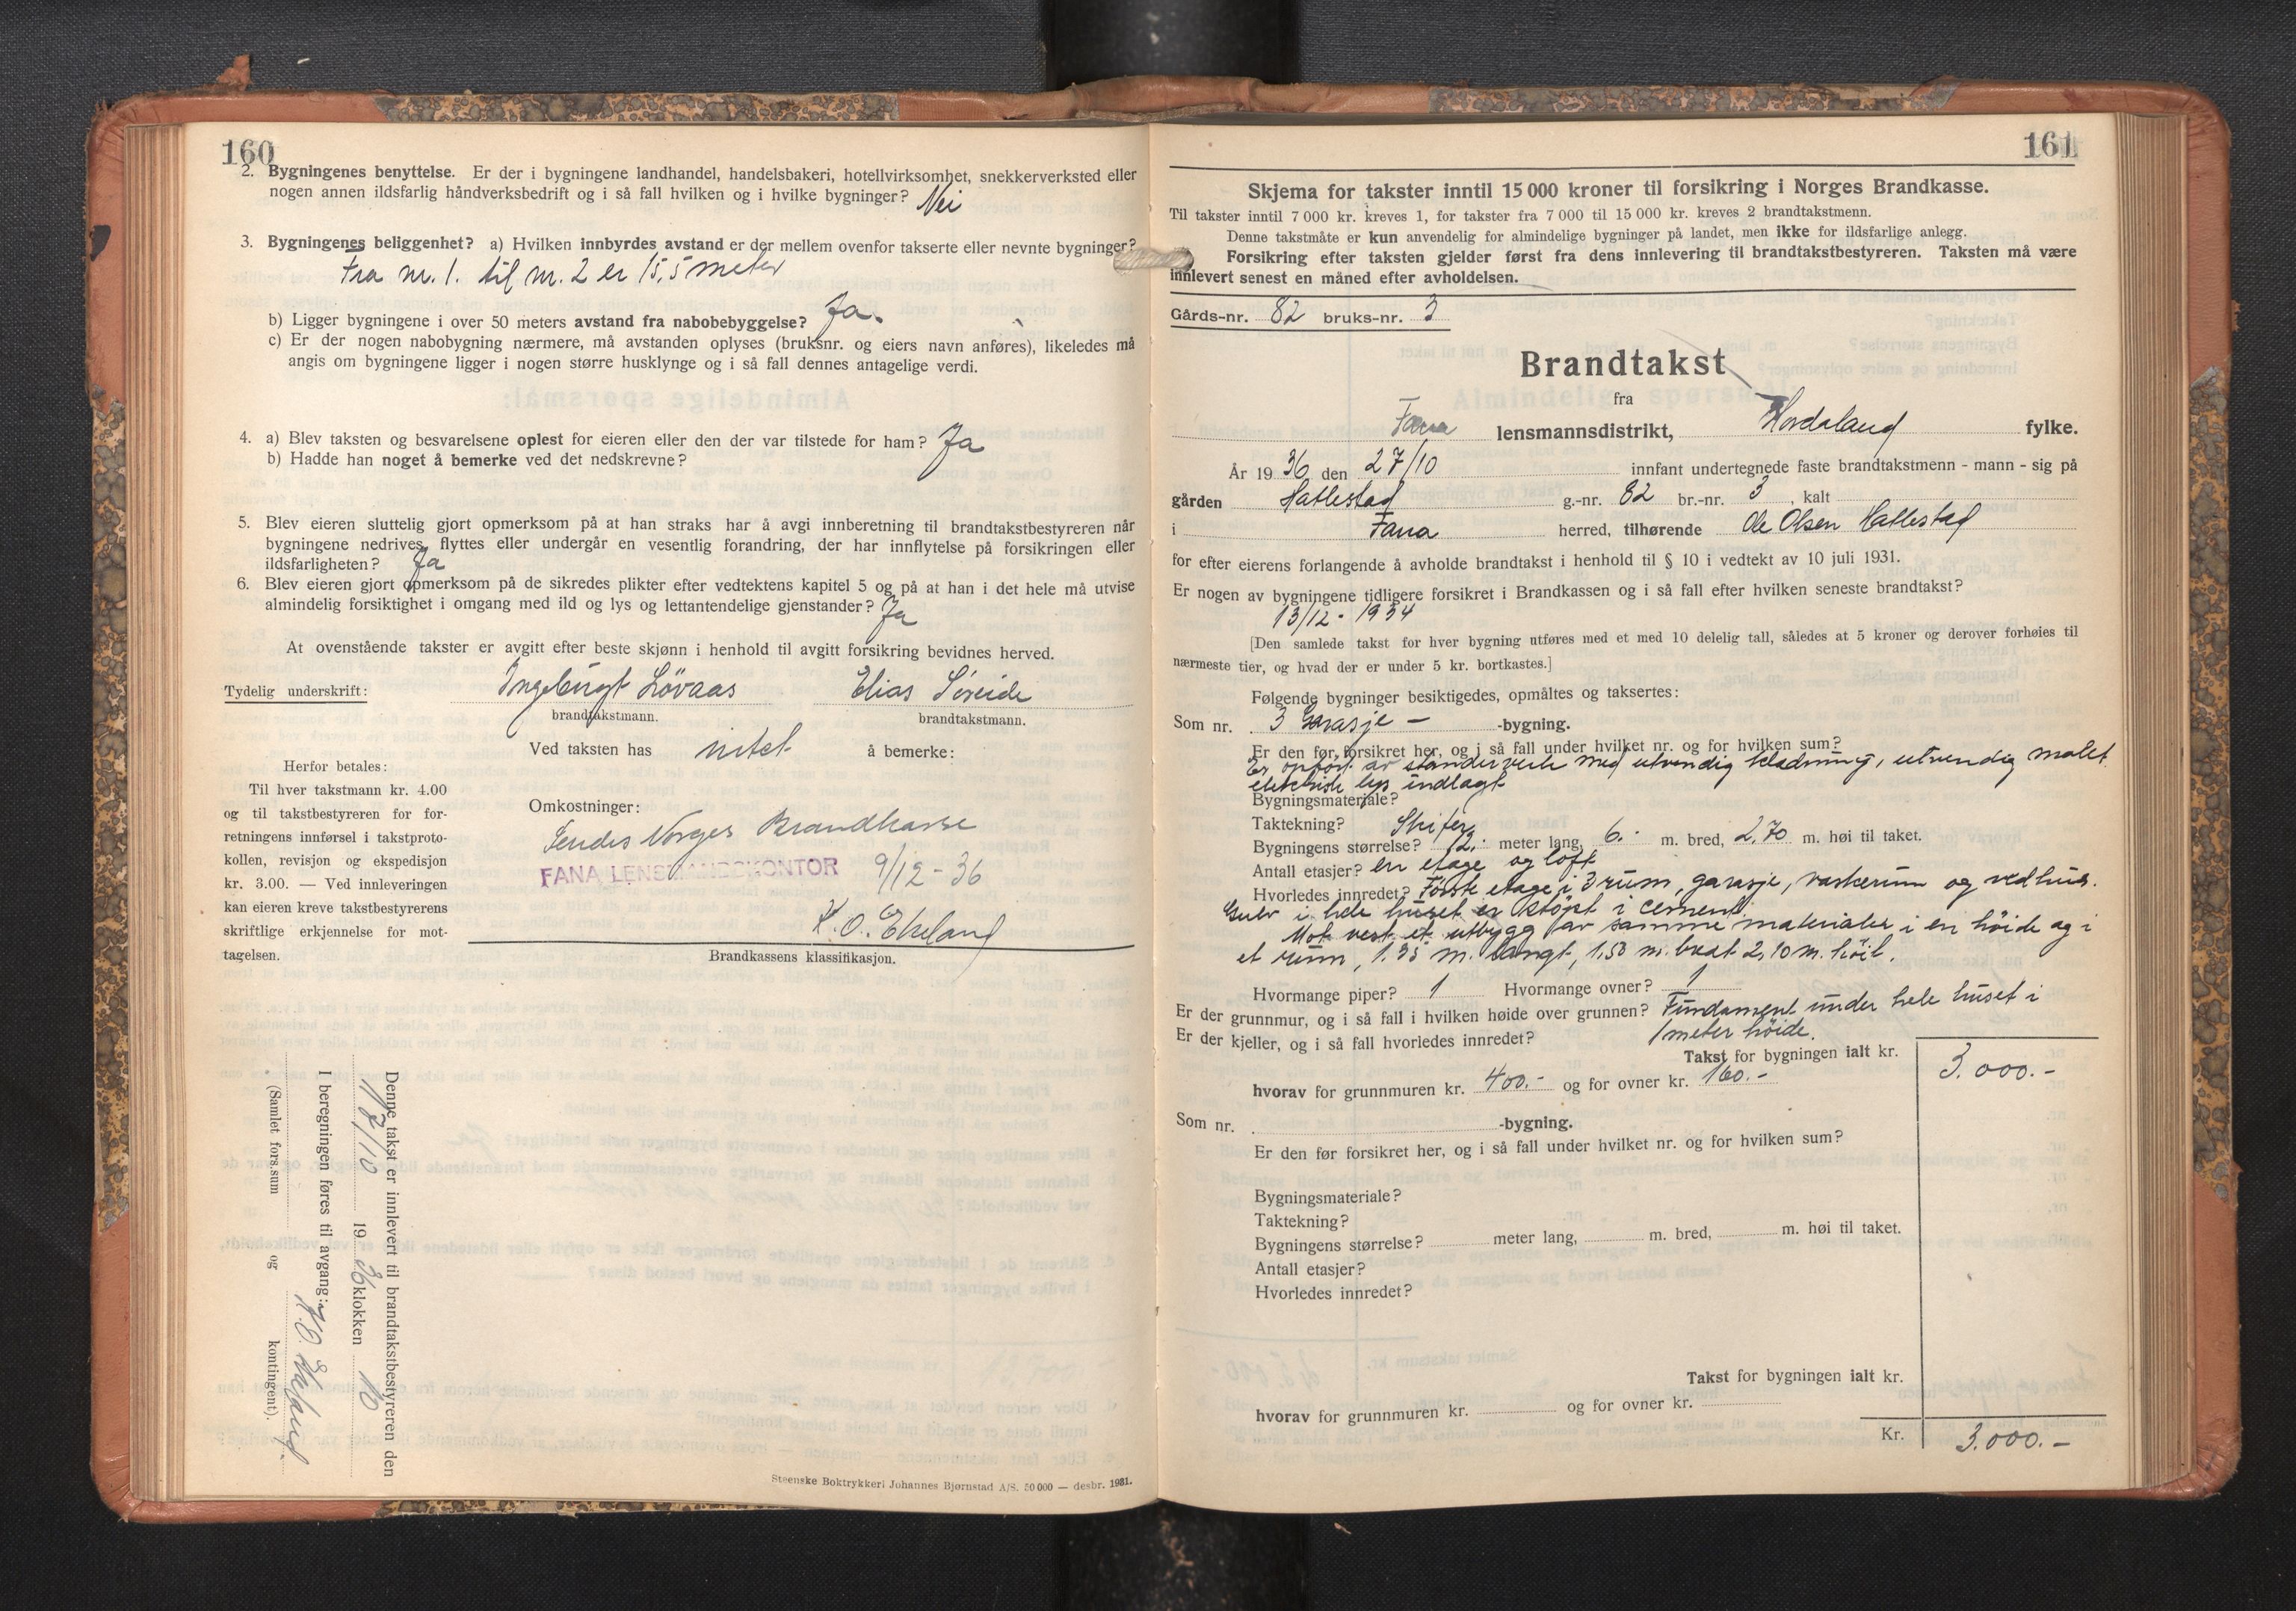 160
2. Bygningenes benyttelse. Er der i bygningene landhandel, handelsbakeri, hotellvirksomhet, snekkerverksted eller
nogen annen ildsfarlig håndverksbedrift og i så fall hvilken og i hvilke bygninger? Nei
3. Bygningenes beliggenhet? a) Hvilken innbyrdes avstand er der mellem ovenfor takserte eller nevnte bygninger?
Fra nr. 1. til nr. 2 er 15,5 meter
b) Ligger bygningene i over 50 meters avstand fra nabobebyggelse? Ja.
c) Er der nogen nabobygning nærmere, må avstanden oplyses (bruksnr. og eiers navn anføres), likeledes må
angis om bygningene ligger i nogen større husklynge og i så fall dennes antagelige verdi.
4. a) Blev taksten og besvarelsene oplest for eieren eller den der var tilstede for ham? Ja
b) Hadde han noget å bemerke ved det nedskrevne?
5. Blev eieren sluttelig gjort opmerksom på at han straks har å avgi innberetning til brandtakstbestyreren når
bygningene nedrives, flyttes eller undergår en vesentlig forandring, der har innflytelse på forsikringen eller
ildsfarligheten? Ja
6. Blev eieren gjort opmerksom på de sikredes plikter efter vedtektens kapitel 5 og på at han i det hele må utvise
almindelig forsiktighet i omgang med ild og lys og lettantendelige gjenstander? Ja
At ovenstående takster er avgitt efter beste skjønn i henhold til avgitt forsikring bevidnes herved.
Tydelig underskrift: Ingebrigt Lövaas Elias Søreide
brandtakstmann. brandtakstmann.
Ved taksten has intet å bemerke:
Herfor betales:
Til hver takstmann kr. 4.00
og til takstbestyreren for for-
retningens innførsel i takstproto-
kollen, revisjon og ekspedisjon
kr. 3.00. — Ved innleveringen
kan eieren kreve takstbestyrerens
skriftlige erkjennelse for mot-
tagelsen.
Omkostninger:
Sendes Norges Brandkasse
FANA LENSMANDSKONTOR 9/12-36
K. O. Ekeland
Brandkassens klassifikasjon.
Denne takst er innlevert til brandtakstbestyreren den
17/10 1936 klokken 10
I beregningen føres til avgang: K.O. Ekeland.
(Samlet fors.sum og kontingent).
Steenske Boktrykkeri Johannes Bjørnstad A/S. 50 000 — desbr. 1931.
161
Skjema for takster inntil 15 000 kroner til forsikring i Norges Brandkasse.
Til takster inntil 7 000 kr. kreves 1, for takster fra 7 000 til 15 000 kr. kreves 2 brandtakstmenn.
Denne takstmåte er kun anvendelig for almindelige bygninger på landet, men ikke for ildsfarlige anlegg.
Forsikring efter taksten gjelder først fra dens innlevering til brandtakstbestyreren. Taksten må være
innlevert senest en måned efter avholdelsen.
Gårds-nr. 82 bruks-nr. 3
Brandtakst
fra
Fana lensmannsdistrikt, Hordaland fylke.
År 1936 den 27/10 innfant undertegnede faste brandtakstmenn - mann - sig på
gården Hatlestad g.-nr. 82 br.-nr. 3, kalt
i Fana herred, tilhørende Ole Olsen Hatlestad
for efter eierens forlangende å avholde brandtakst i henhold til § 10 i vedtekt av 10 juli 1931.
Er nogen av bygningene tidligere forsikret i Brandkassen og i så fall efter hvilken seneste brandtakst?
13/12 - 1934
[Den samlede takst for hver bygning utføres med et med 10 delelig tall, således at 5 kroner og derover forhøies til
nærmeste tier, og hvad der er under 5 kr. bortkastes.]
Følgende bygninger besiktigedes, opmåltes og taksertes:
Som nr. 3 Garasje - -bygning.
Er den før forsikret her, og i så fall under hvilket nr. og for hvilken sum?
Er opført av stenderverk med utvendig kledning, utvendig malet
elektrisk lys indlagt
Bygningsmateriale?
Taktekning? Skifer
Bygningens størrelse? 12.- meter lang, 6.- m. bred, 2,70 m. høi til taket.
Antall etasjer? en etage og loft
Hvorledes innredet? Første etage i 3 rum, garasje, vaskerum og vedhus.
Gulv i hele huset er støpt i cement.
Mot vest et utbygg av samme materialer i en høide og i
et rum, 1.35 m. langt, 1,50 m. bredt 2,10 m. høit.
Hvormange piper? 1 Hvormange ovner? 1
Er der grunnmur, og i så fall i hvilken høide over grunnen? Fundament under hele huset i
Er der kjeller, og i så fall hvorledes innredet? 1 meter høide.
Takst for bygningen ialt kr. 3.000.-
hvorav for grunnmuren kr. 400.- og for ovner kr. 160.-
Som nr. -bygning.
Er den før forsikret her, og i så fall under hvilket nr. og for hvilken sum?
Bygningsmateriale?
Taktekning?
Bygningens størrelse? meter lang, m. bred, m. høi til taket.
Antall etasjer?
Hvorledes innredet?
Takst for bygningen ialt kr.
hvorav for grunnmuren kr. og for ovner kr.
Kr. 3.000.-